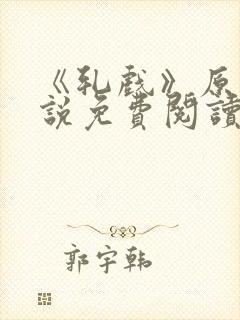 《乳戲》原
說免費閱讀
郭宇韩